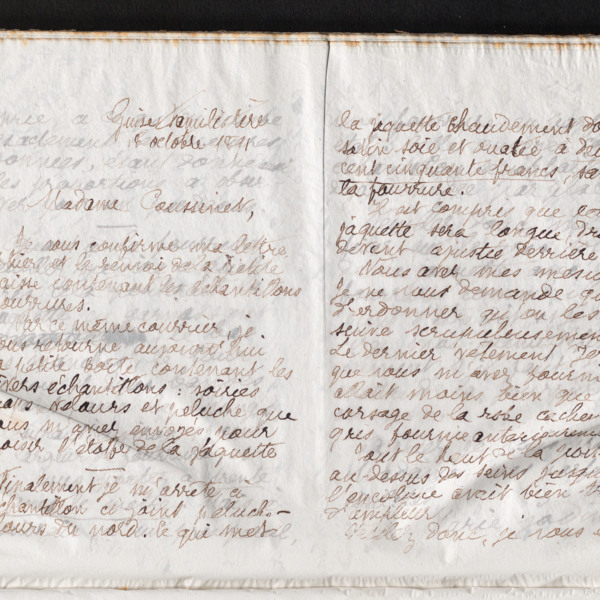 Guise Familistère
octobre
Madame Cousinet,
Je vous confirme ma lettre
d'hier et le renvoi de la petite
caisse contenant les échantillons
fourrures.
Par ce même courrier, je
vous retourne aujourd'hui
la petite boîte contenant les
divers échantillons : soiries
velours et peluche que
vous m'avez envoyés pour
choisir l'étoffe de la jaquette
Finalement je m'arrête à
échantillon ci-joint peluche-
velours du nord. Ce qui met
la jaquette chaudement
selon soie et ouatée à
cent cinquante francs,
la fourrure.
Il est compris que
jaquette sera longue
devant ajustée derrière
Vous avez mes
Je ne vous demande
d'ordonner qu'on les
suive scrupuleusement
Le dernier vêtement
que vous m'avez
allait moins bien que
corsage de la robe
gris fournie antérieurement
Tout le haut de la
au-dessus des seins jusque
l'encolure avait bien
d'ampleur
Veillez donc, je vous